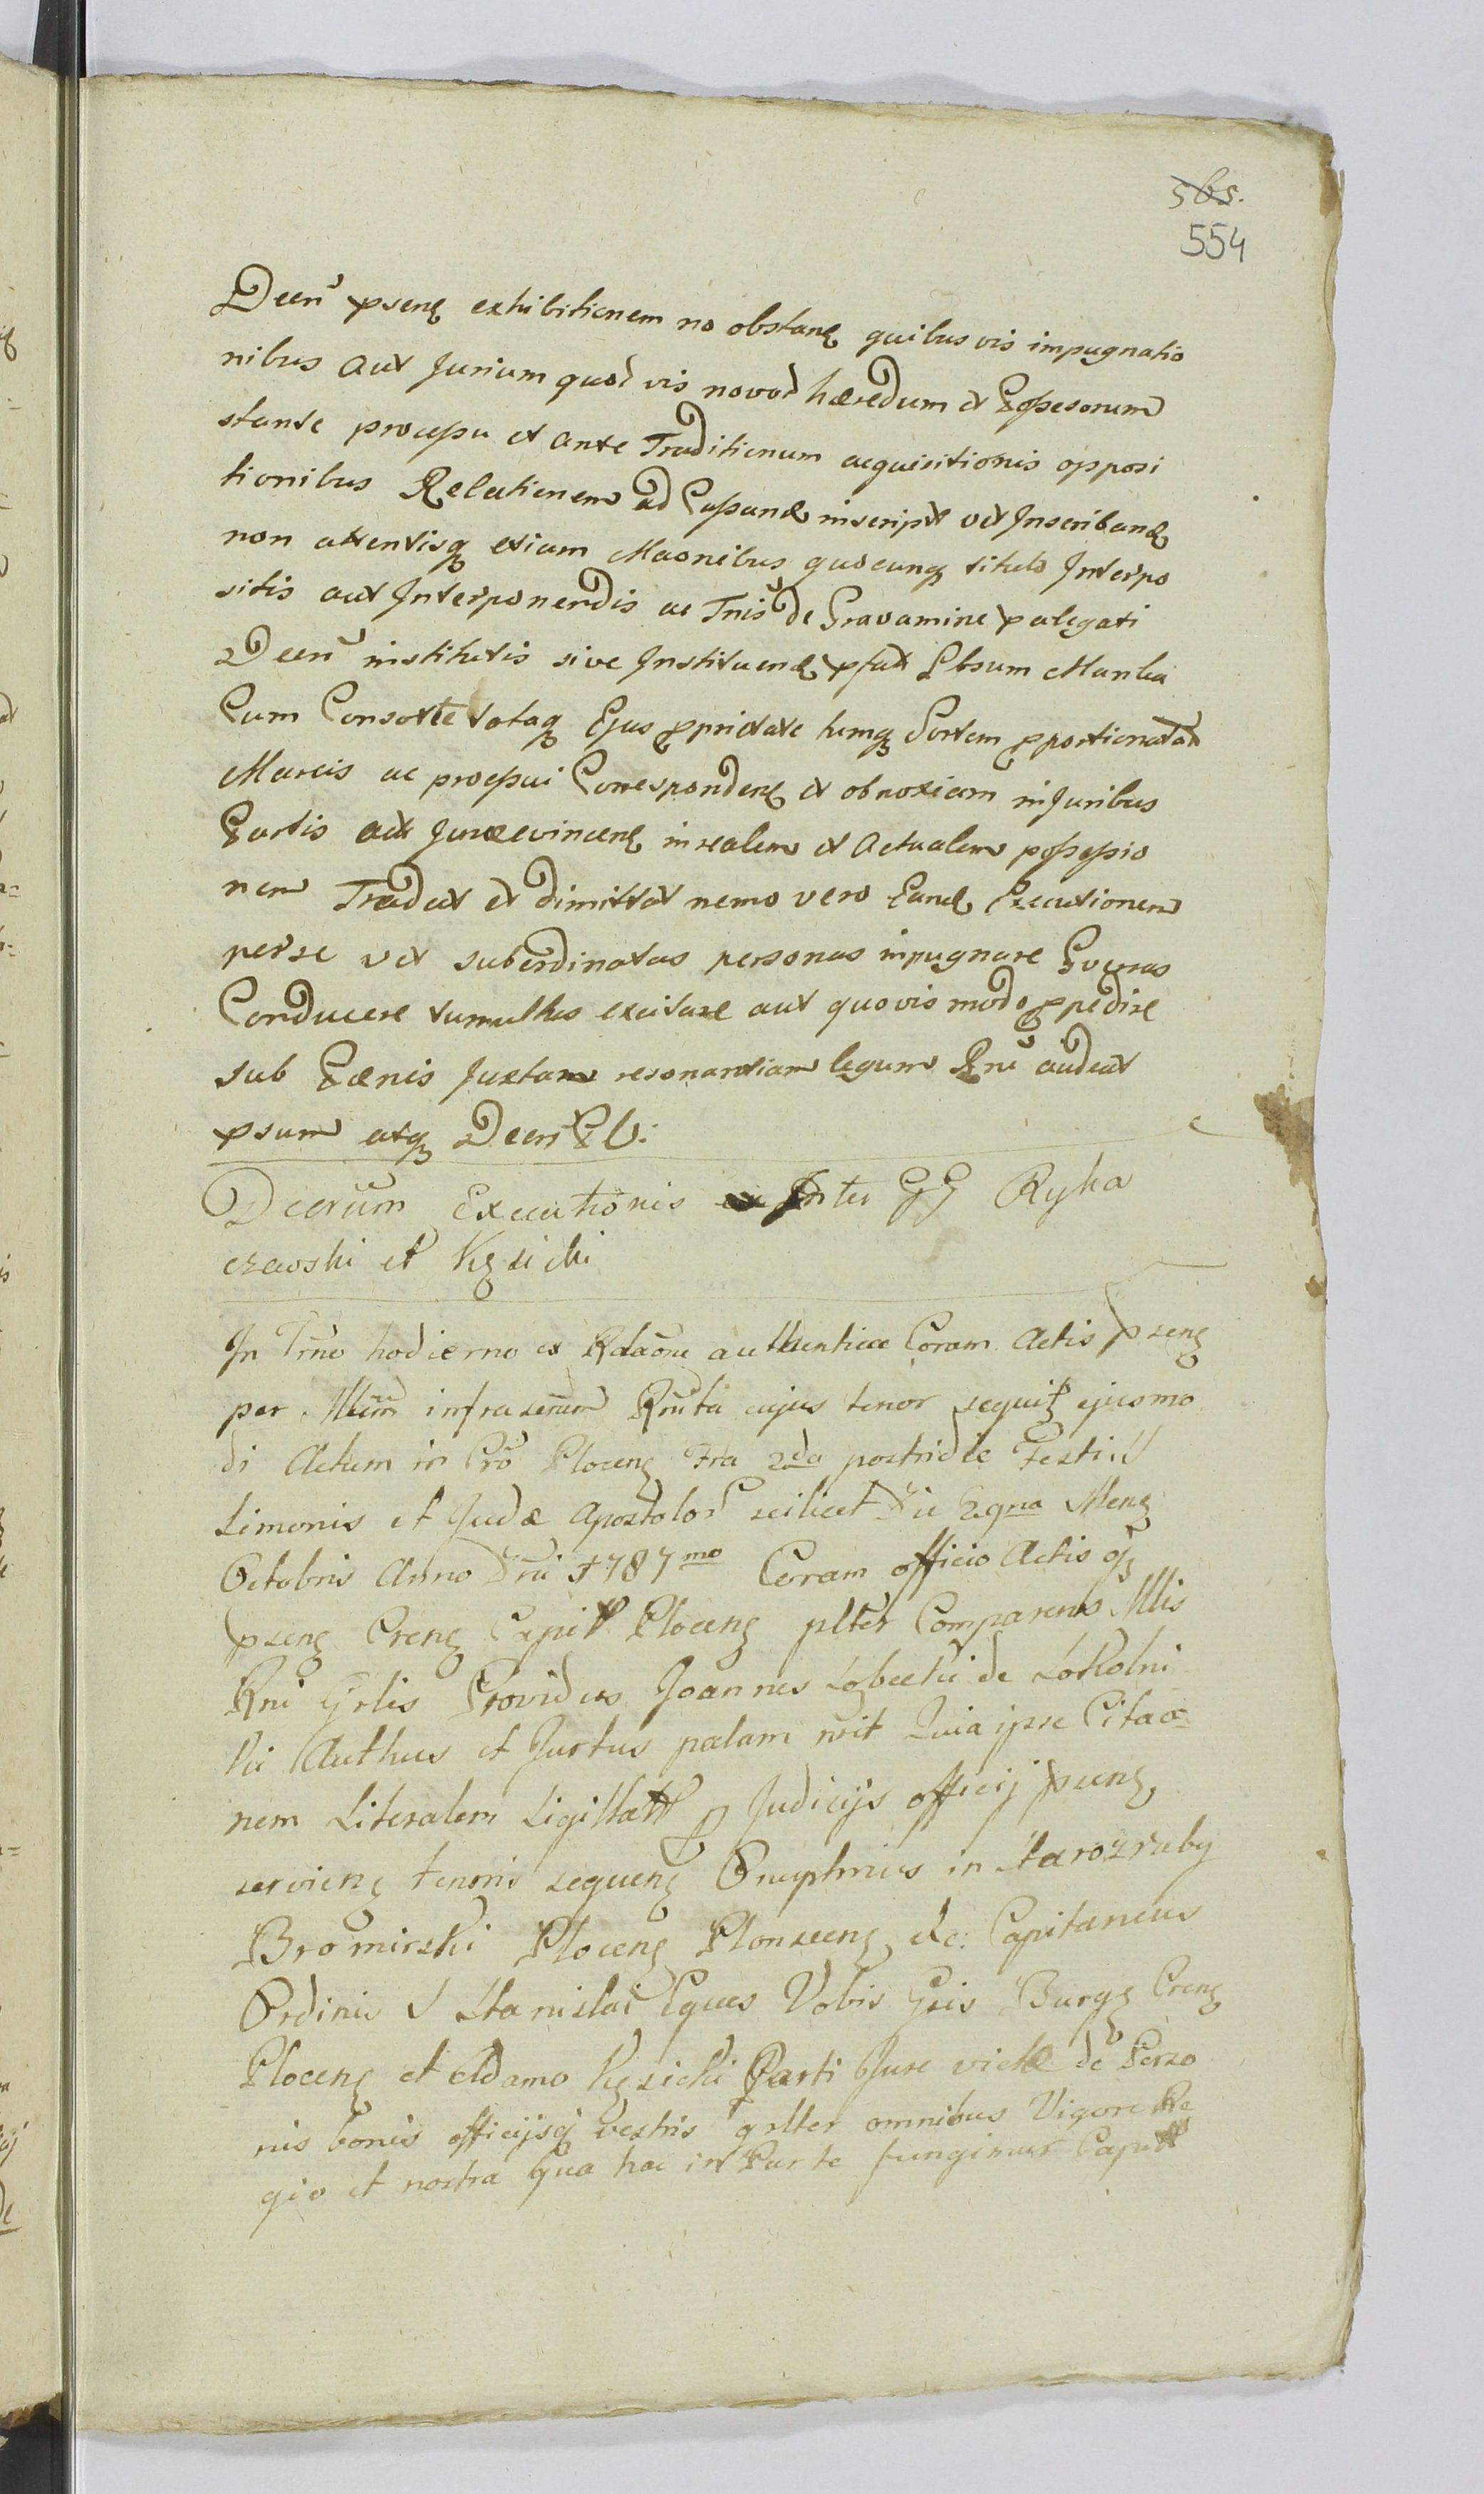 565.
554
Decrī pseng exhibitionem no obstang quibus vis impugnatio
nibus aut Jurium quod vis novor hæredum et Possesorum
stante processu et ante Traditionum acquisitionis opposi
tionibus Relationem ad Cassand inscript vel Inscribend
non attentisq etiam Maonibus quocunq titulo Interpo
sitis aut Interponendis ac Tnis de Gravamine palegati
Decrī institutis sive Instituend pfat
Cum Consorte totaq Ejus pprietate tumq Sortem pportionatam
Mareis ac processui Corresponden et obnoxiam in Juribus
Partis aut Juræevinceng in realem et Actualem possessio
nem Tradat et dimittat nemo vero Eand Executionem
per se vel subordinatas personas inpugnare Guerras
Conducere tumultus excitare aut quovis modo ppedire
sub Pænis Juxtam resonantiam legum Rni audeat
psum atq Decri
Decrum Executionis Inter GG Ryka
czewski et Kęsicki
In Trno hodierno ex Rlaõne authentica Coram Actis pseng
per Mlem infrascrum Rnita cujus tenor sequit ejusmo
di Actum in Cro Ploceng Fra 2da postridie Festi S
Simonis et Judæ Apostolor scilicet Die 29na Meng
Octobris Anno Dni 1787mo Coram officio Actis q
pseng Creng Capit Ploceng plter Comparens Mlis
Rni Grlis Providus Joannes de Sokolni
ki Authus et Jurtus palam nrit Quia ipse Citao
nem Literalem Sigillat p Judicijs officij pseng
servieng tenoris sequeng Onuphrius in Starozruby
Bromirski Ploceng Plonsceng etc: Capitaneus
Ordinis S Stanislai Eques Vobis Gsis Burgg Creng
Ploceng et Adamo Kęsicki Parti Jure victæ de Perso
nis bonis officijsq vestris grlter omnibus Vigore Re
gio et nostra qua hac in Parte fungimur Capit